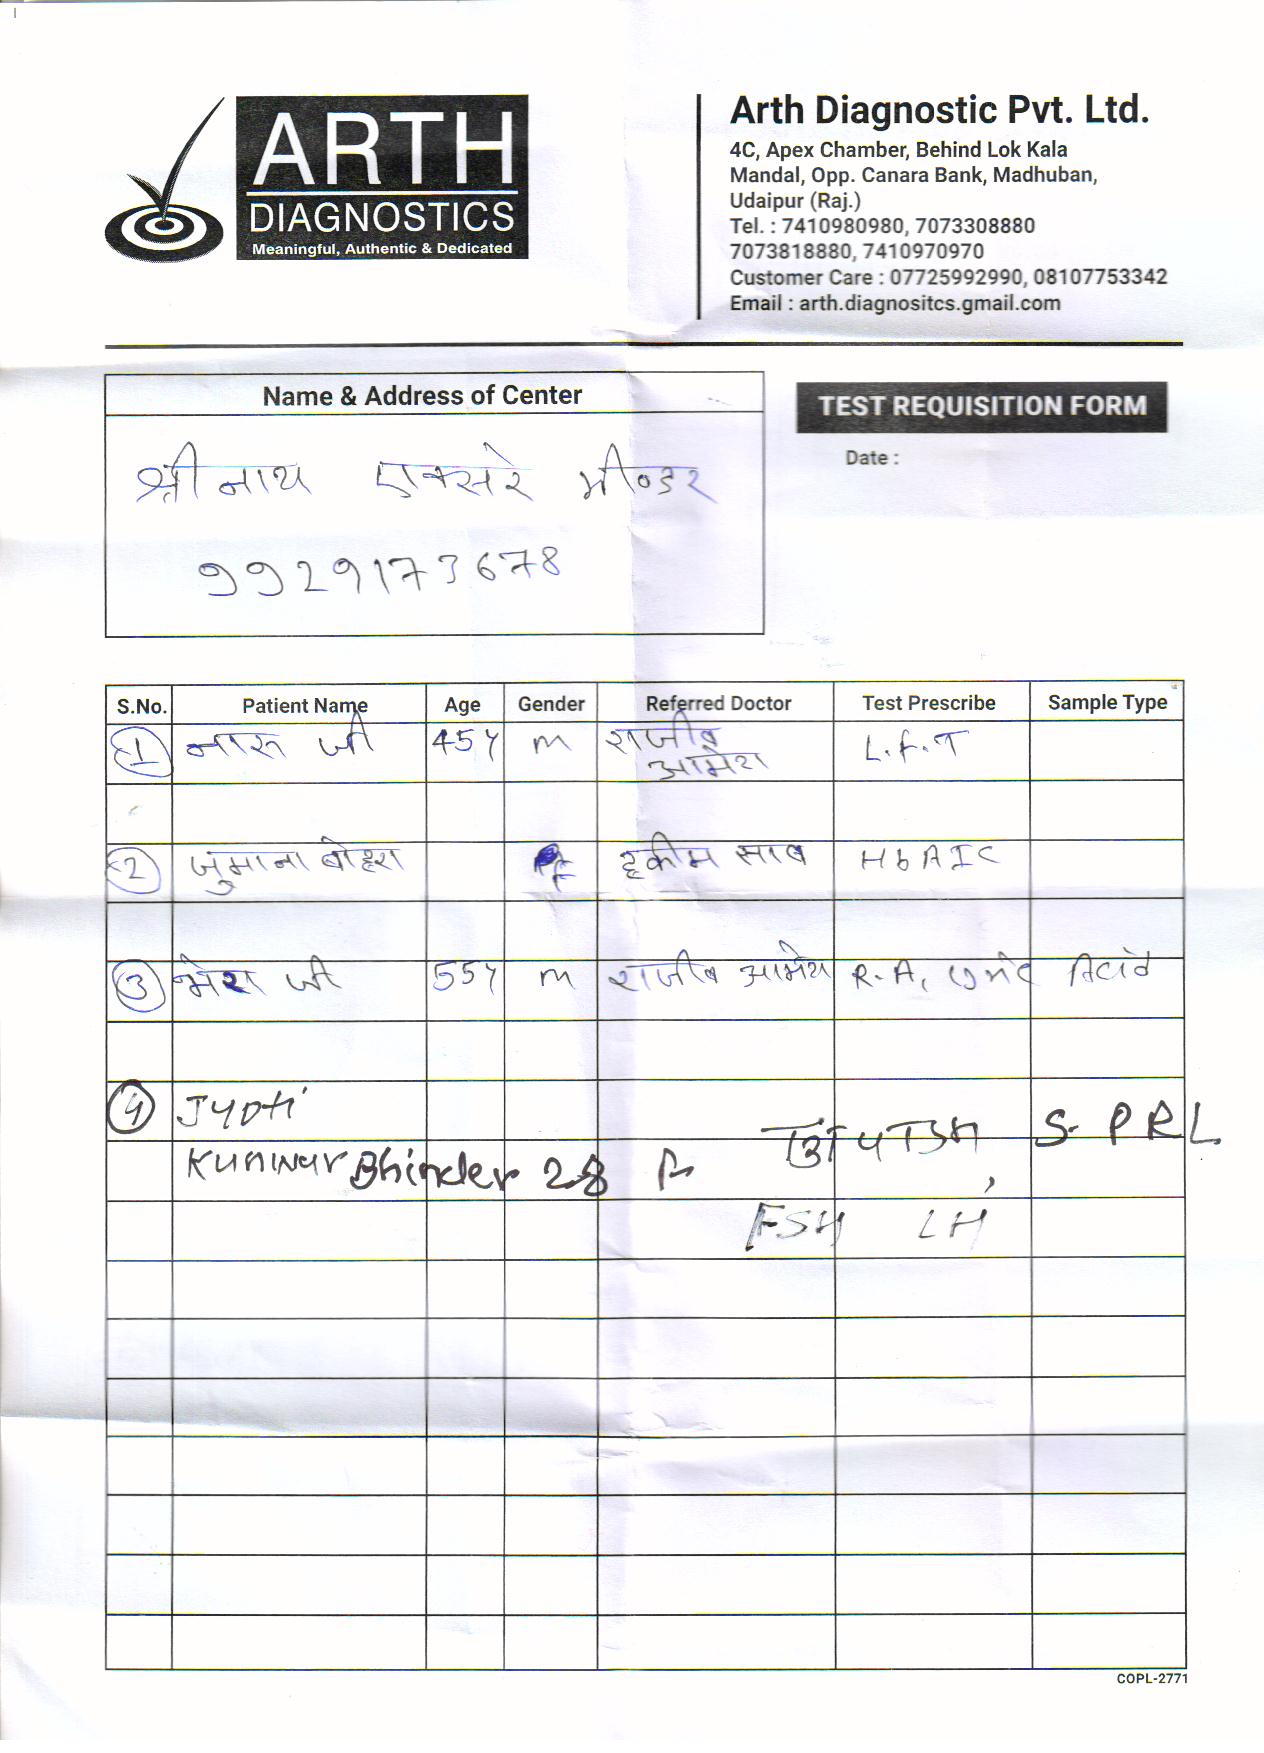 ARTH
DIAGNOSTICS
Meaningful, Authentic & Dedicated
Arth Diagnostic Pvt. Ltd.
4C, Apex Chamber, Behind Lok Kala
Mandal, Opp. Canara Bank, Madhuban,
Udaipur (Raj.)
Tel. : 7410980980, 7073308880
7073818880, 7410970970
Customer Care : 07725992990, 08107753342
Email : arth.diagnositcs.gmail.com
Name & Address of Center
श्री नाथ एक्सरे भीण्डर
9929173678
TEST REQUISITION FORM
Date :
S.No. Patient Name Age Gender Referred Doctor Test Prescribe Sample Type
1 नारू जी 45y m राजीव L.F.T
आमेरा
2 जुमाना बोहरा F हकीम साब HbA1C
3 जी 55y m राजीव आमेरा R.A, Acid
4 Jyoti S. PRL
Kunwar Bhinder 28 F TSH,
FSH LH
COPL-2771